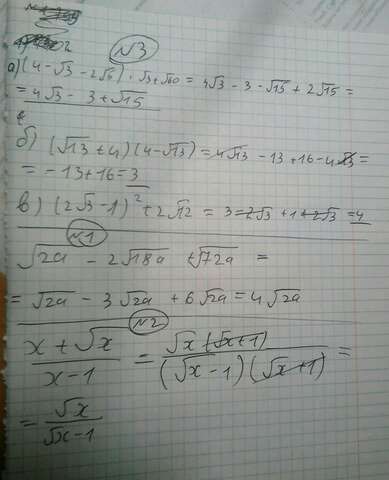 N3
а) (4 - √3 - 2√5) · √3 + √60 = 4√3 - 3 - √15 + 2√15 =
= 4√3 - 3 + √15
б) (√13 + 4)(4 - √13) = 4√13 - 13 + 16 - 4√13 =
= -13 + 16 = 3
в) (2√3 - 1)² + 2√12 = 3 - 2√3 + 1 + 2√3 = 4
N1
√2a - 2√18a + √72a =
= √2a - 3√2a + 6√2a = 4√2a
N2
x + √x / x - 1 = √x (√x + 1) / (√x - 1)(√x + 1) =
= √x / √x - 1